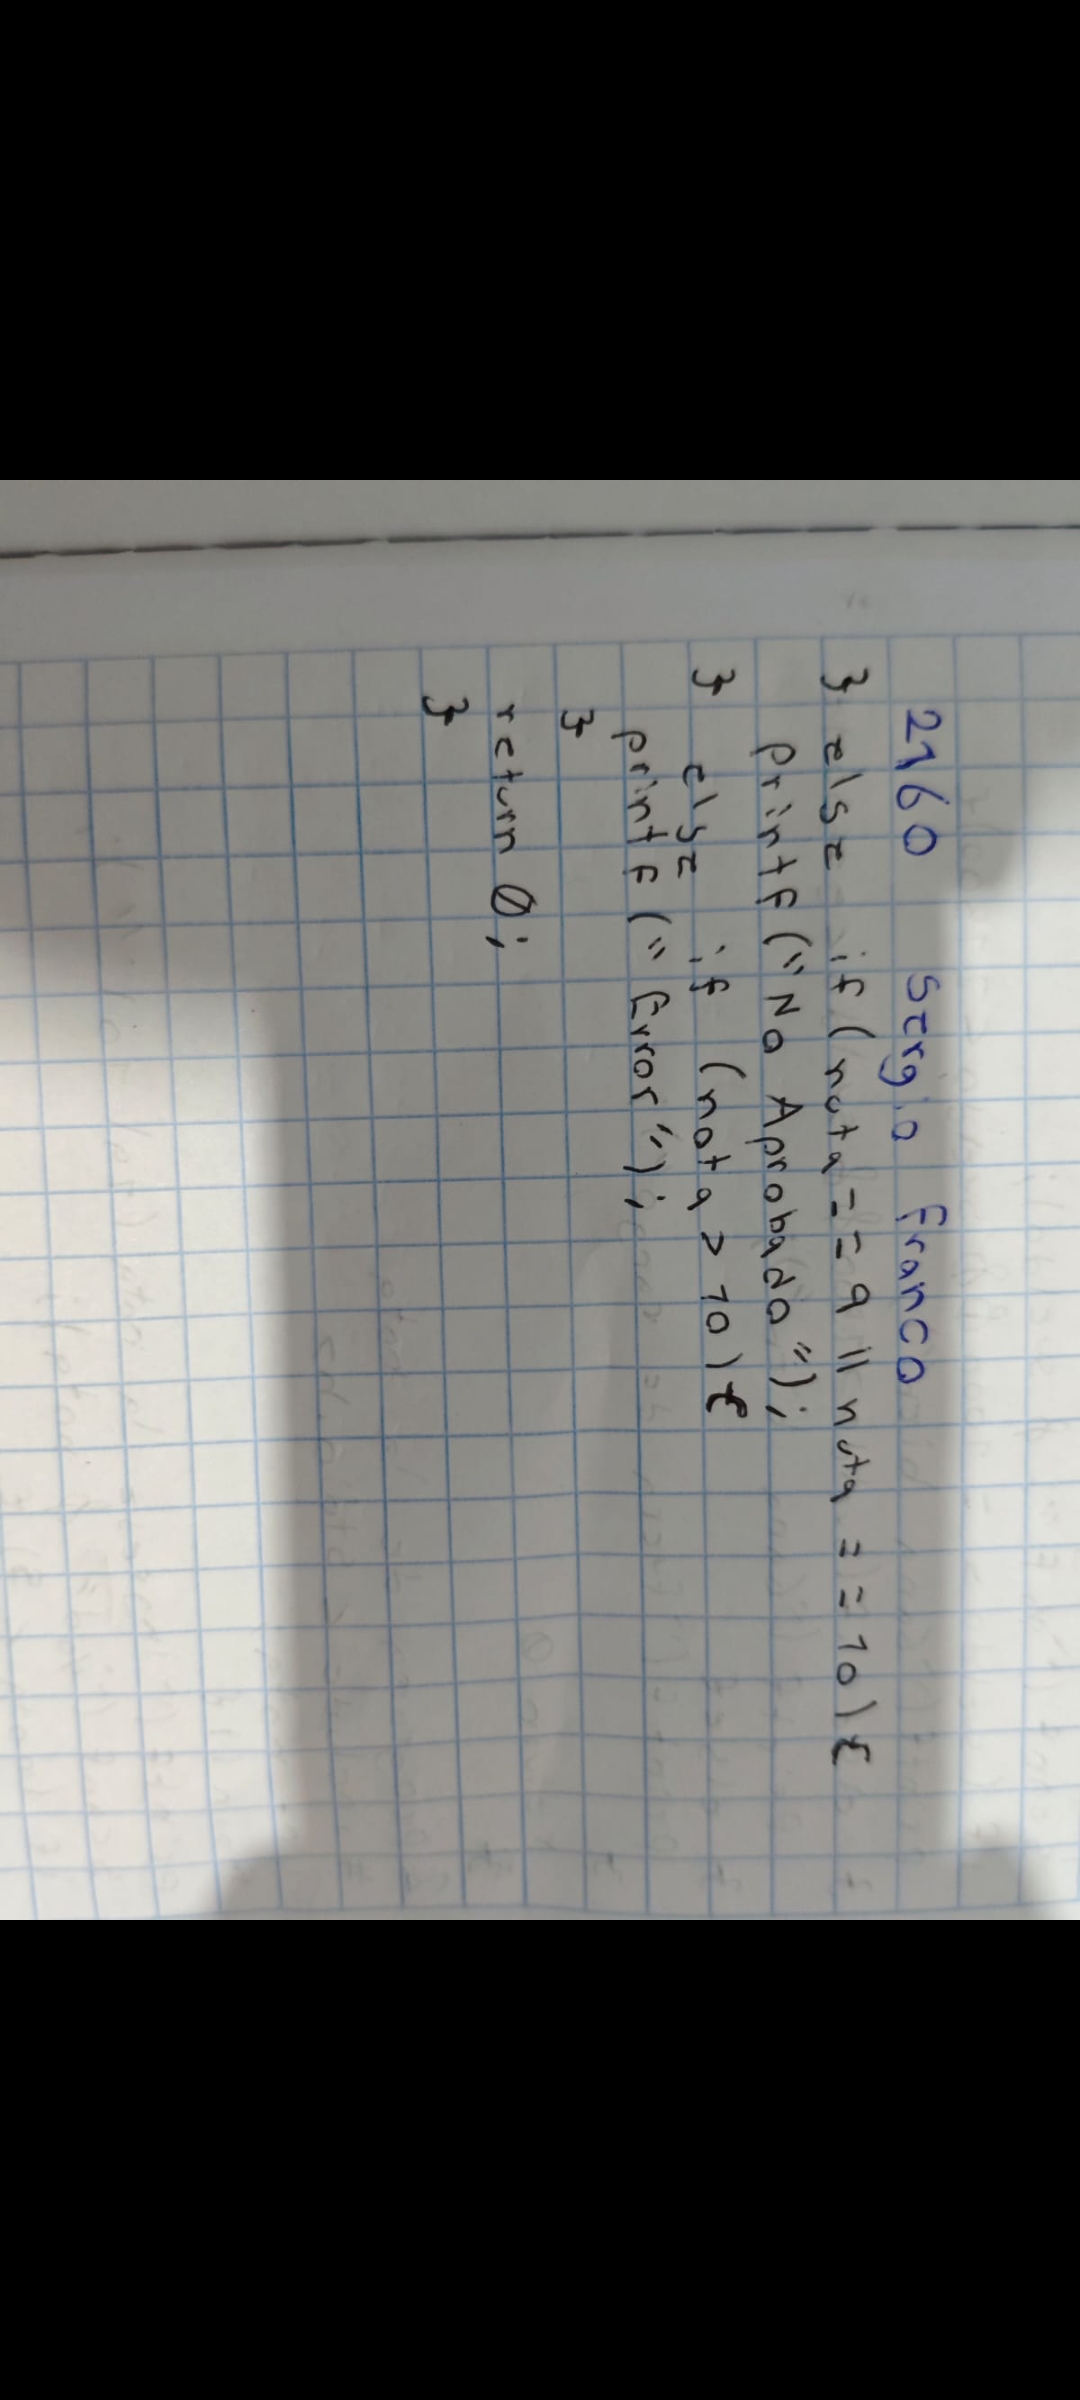 2160 Sergio Franco
} else if (nota == 9 || nota == 10) {
printf ("No Aprobado");
} else if (nota > 10) {
printf ("Error");
}
return 0;
}